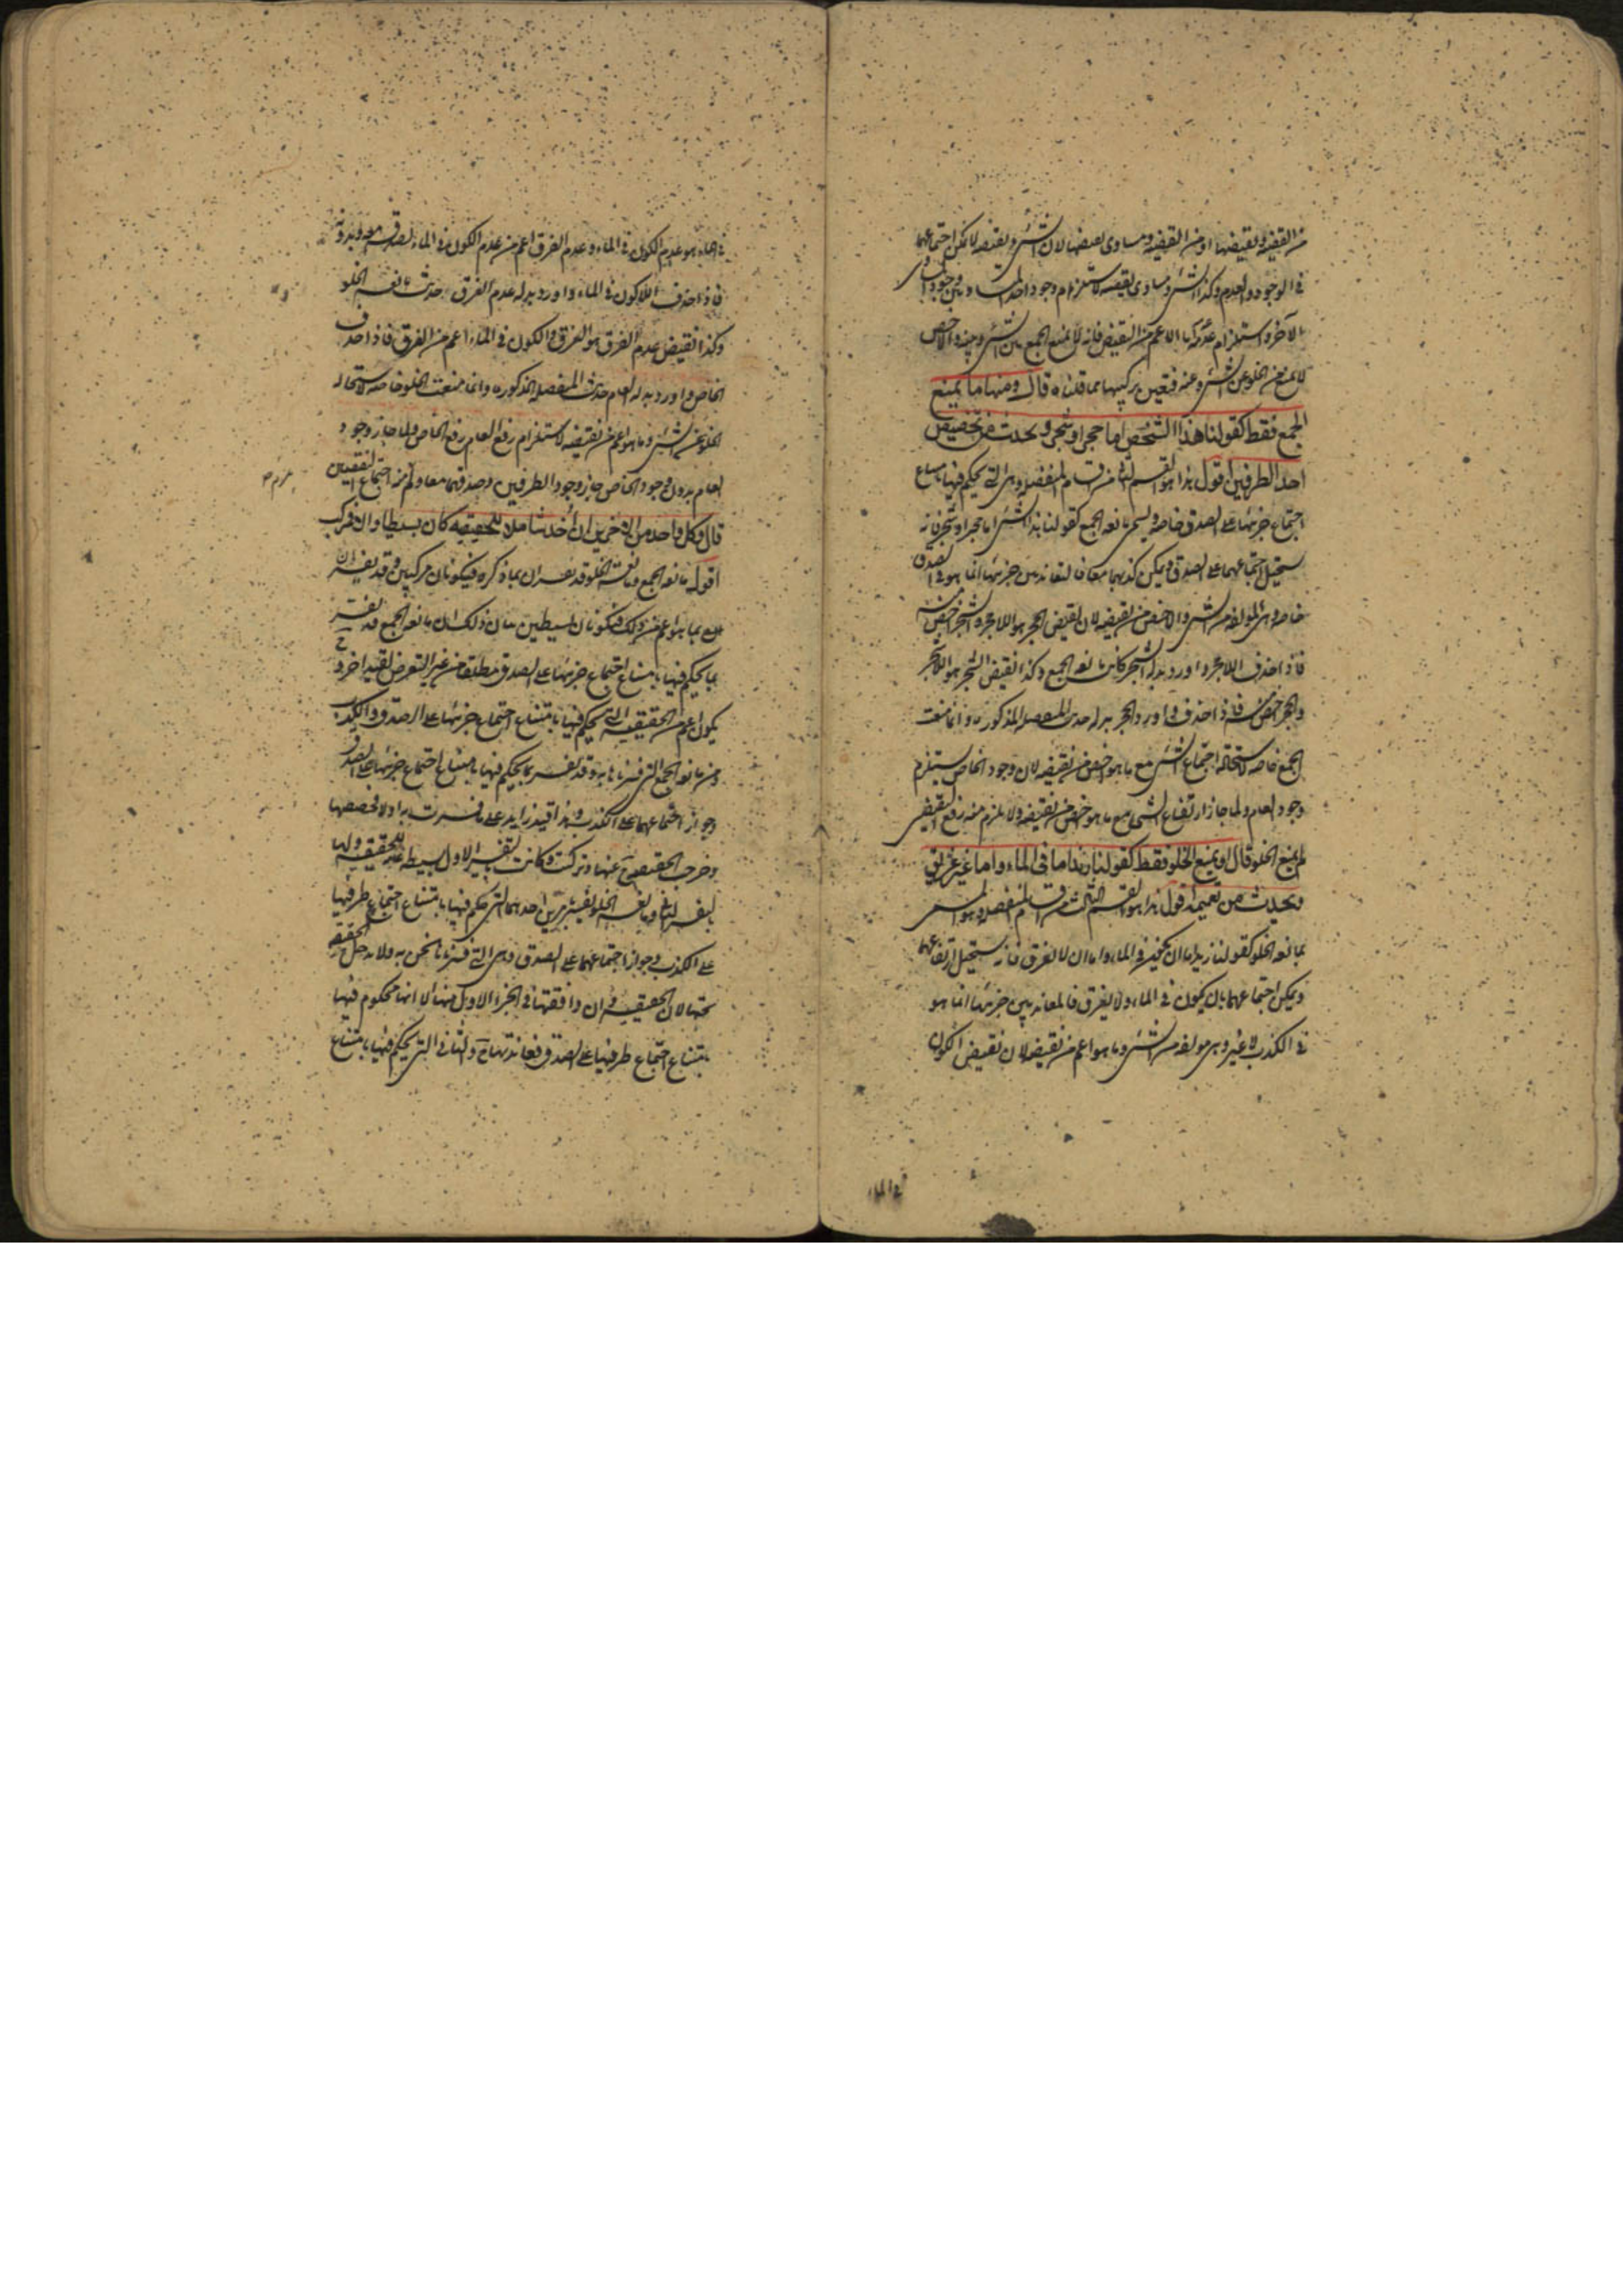 من القضية ونقيضها او من القضية ومساوى نقيضها لان الشئ ونقيضه لا يمكن اجتماعهما
فى الوجود والعدم وكذا الشئ ومساوى نقيضه لاستلزام وجود احد المتساويين وجود
الآخر واستلزام عدمه اما الاعم من النقيض فانه لا يمنع الجمع بين الشئ وبينه والاخص
لا يمنع من الخلو عن الشئ وعنه فتعين تركيبها مما قلناه قال ومنها ما يمنع
الجمع فقط كقولنا هذا الشخص اما حجر او شجر وتحدث من تخصيص
احد الطرفين اقول هذا هو القسم الثانى من اقسام المنفصلة وهى التى يحكم فيها بامتناع
اجتماع جزئيها على الصدق خاصة ويسمى مانعة الجمع كقولنا هذا الشئ اما حجر او شجر فانه
يستحيل اجتماعهما على الصدق ويمكن كذبهما معا فالتعاند بين جزئيها انما هو فى الصدق
خاصة وهى المؤلفة من الشئ والاخص من نقيضه لان نقيض الحجر هو اللاحجر والشجر اخص منه
فاذا حذف اللاحجر واورد بدله الشجر كانت مانعة الجمع وكذا نقيض الشجر هو اللاشجر
والحجر اخص منه فاذا حذف واورد الحجر بدله حدثت المنفصلة المذكورة وانما منعت
الجمع خاصة لاستحالة اجتماع الشئ مع ما هو اخص من نقيضه لان وجود الخاص يستلزم
وجود العام ولما جاز ارتفاع الشئ مع ما هو اخص من نقيضه ولا يلزم منه رفع النقيض
لم يمنع الخلو قال او يمنع الخلو فقط كقولنا زيد اما فى الماء واما غير غريق
وتحدث من تعميمه اقول هذا هو القسم الثالث من اقسام المنفصلة وهو المسمى
بمانعة الخلو كقولنا زيد اما ان يكون فى الماء واما ان لا يغرق فانه يستحيل ارتفاعهما
ويمكن اجتماعهما بان يكون فى الماء ولا يغرق فالمعاندة بين جزئيها انما هو
فى الكذب لا غير وهى مؤلفة من الشئ وما هو اعم من نقيضه لان نقيض الكون
فى الماء
فى الماء هو عدم الكون فى الماء وعدم الغرق اعم من عدم الكون فى الماء لصدقه معه وبدونه
فاذا حذف اللاكون فى الماء واورد بدله عدم الغرق حدثت مانعة الخلو
وكذا نقيض عدم الغرق هو الغرق والكون فى الماء اعم من الغرق فاذا حذف
الخاص واورد بدله العام حدثت المنفصلة المذكورة وانما منعت الخلو خاصة لاستحالة
الخلو عن الشئ وما هو اعم من نقيضه لاستلزام رفع العام رفع الخاص ولما جاز وجود
العام بدون وجود الخاص جاز وجود الطرفين وصدقهما معا ولم يلزم منه اجتماع النقيضين
قال وكل واحد من الاخرين ان اخذ شاملا للحقيقية كان بسيطا والا فمركب
اقول مانعة الجمع ومانعة الخلو قد تفسران بما ذكره فيكونان مركبين وقد تفسران
بما هو اعم من ذلك فيكونان بسيطين بيان ذلك ان مانعة الجمع قد تفسر
بما يحكم فيها بامتناع اجتماع جزئيها على الصدق مطلقا من غير التعرض لقيد اخر وح
يكون اعم من الحقيقية التى يحكم فيها بامتناع اجتماع جزئيها على الصدق والكذب
ومن مانعة الجمع التى فسرناها به وقد تفسر بما يحكم فيها بامتناع اجتماع جزئيها على الصدق
وجواز اجتماعهما على الكذب وهذا قيد زايد على ما فسرت به اولا لخصصها
وخرجت الحقيقية عنها وتركبت وكانت بالتفسير الاول بسيطة للحقيقية ولها
بالتفسير الثانى ومانعة الخلو تفسيرين احدهما التى حكم فيها بامتناع اجتماع طرفيها
على الكذب وجواز اجتماعهما على الصدق وهى التى فسرناها نحن به ولا تدخل الحقيقية
تحتها لان الحقيقية وان وافقتها فى الجزء الاول منها الا انها محكوم فيها
بامتناع اجتماع طرفيها على الصدق فعاندتها ح والثانى التى يحكم فيها بامتناع